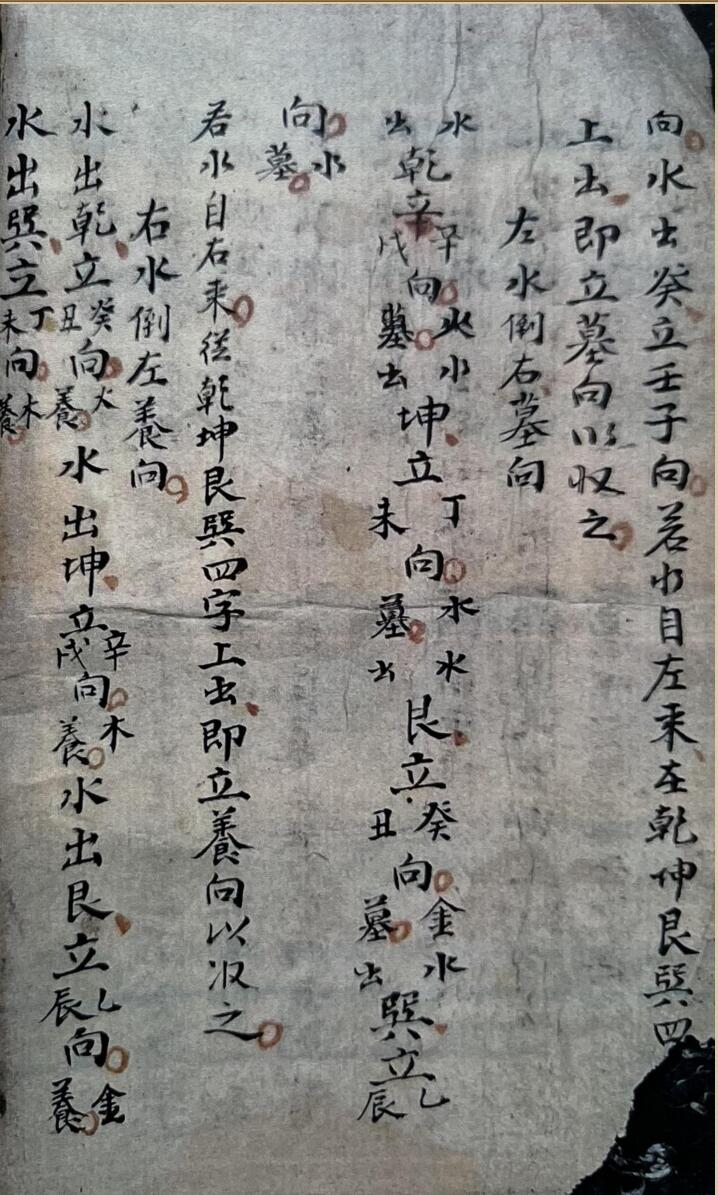 向水出癸立壬子向若水自左来在乾坤艮巽四
上出即立墓向以収之
左水倒右墓向
水出乾立辛戌向火墓水出坤立丁未向水墓水出艮立癸丑向金墓水出巽立乙辰
向水墓
若水自右来從乾坤艮巽四字上出即立養向以収之
右水倒左養向
水出乾立癸丑向火養水出坤立辛戌向木養水出艮立乙辰向金養
水出巽立丁未向木養